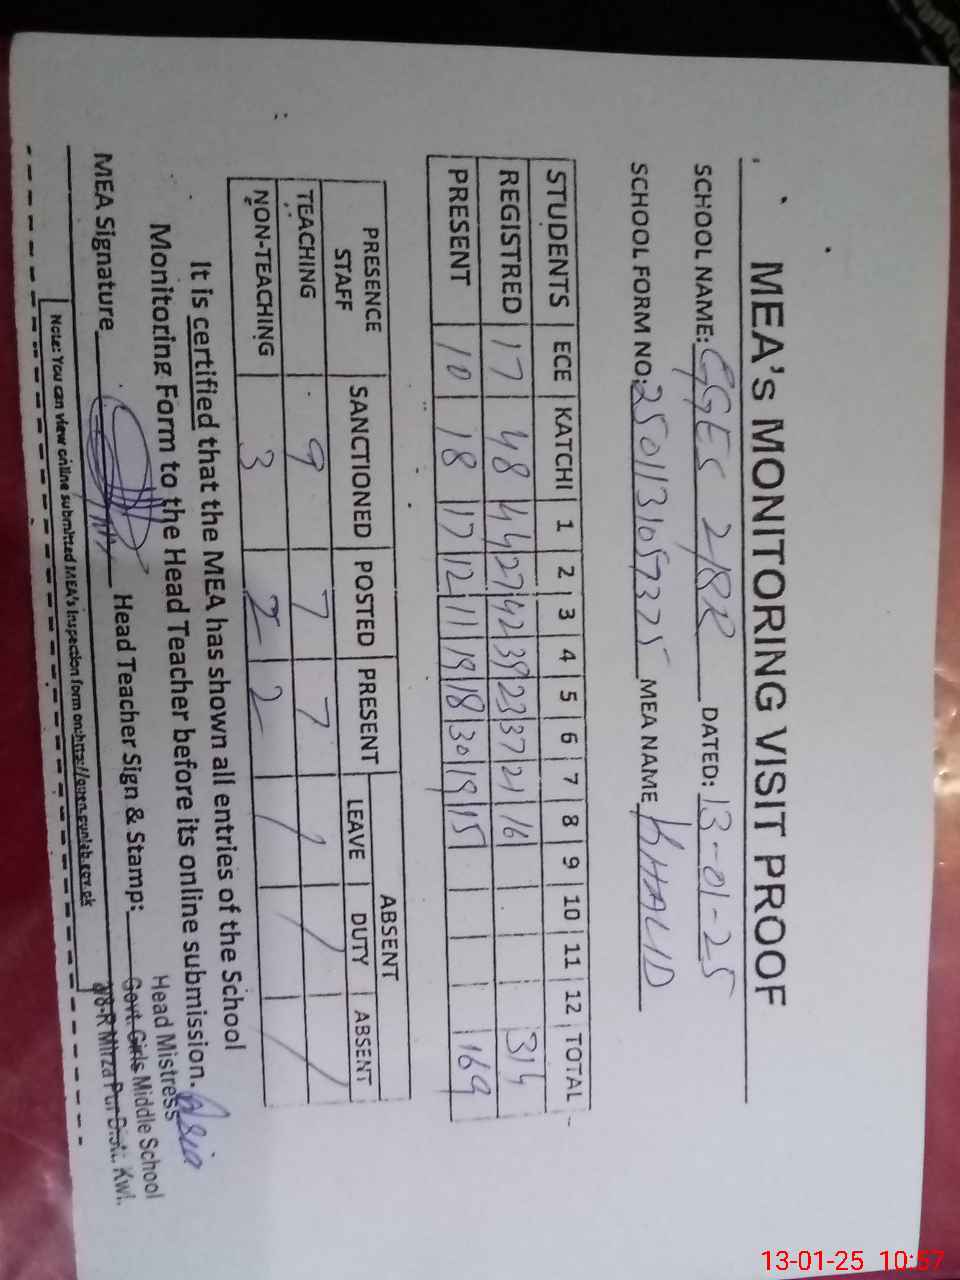 MEA's MONITORING VISIT PROOF
SCHOOL NAME: GGES 2/8R DATED: 13-01-25
SCHOOL FORM NO: 250113105732 5 MEA NAME KHALID
STUDENTS ECE KATCHI 1 2 3 4 5 6 7 8 9 10 11 12 TOTAL
REGISTRED 17 48 44 27 42 39 23 37 21 16 314
PRESENT 10 18 17 12 11 19 18 30 19 15 169
PRESENCE STAFF SANCTIONED POSTED PRESENT ABSENT
LEAVE DUTY ABSENT
TEACHING 9 7 7 / / /
NON-TEACHING 3 2 2 / / /
It is certified that the MEA has shown all entries of the School
Monitoring Form to the Head Teacher before its online submission.
MEA Signature Head Teacher Sign & Stamp: Asia
Head Mistress
Govt. Girls Middle School
2/8-R Mirza Pur Distt. Kwl.
Note: You can view online submitted MEA's inspection form on:
13-01-25 10:57